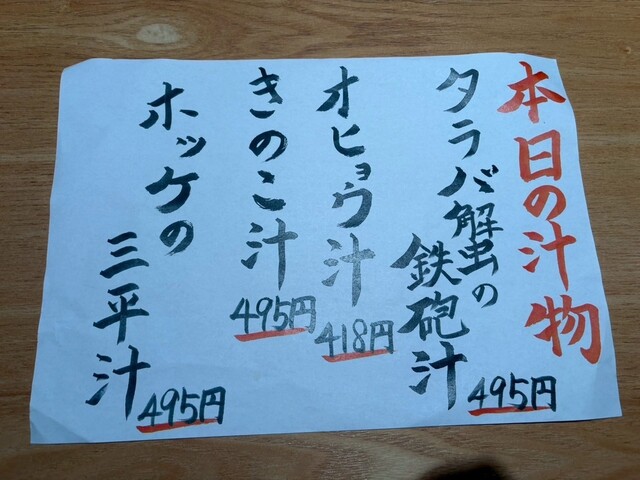 本日の汁物
タラバ蟹の
鉄砲汁
495円
オヒョウ汁
418円
きのこ汁
495円
ホッケの
三平汁
495円